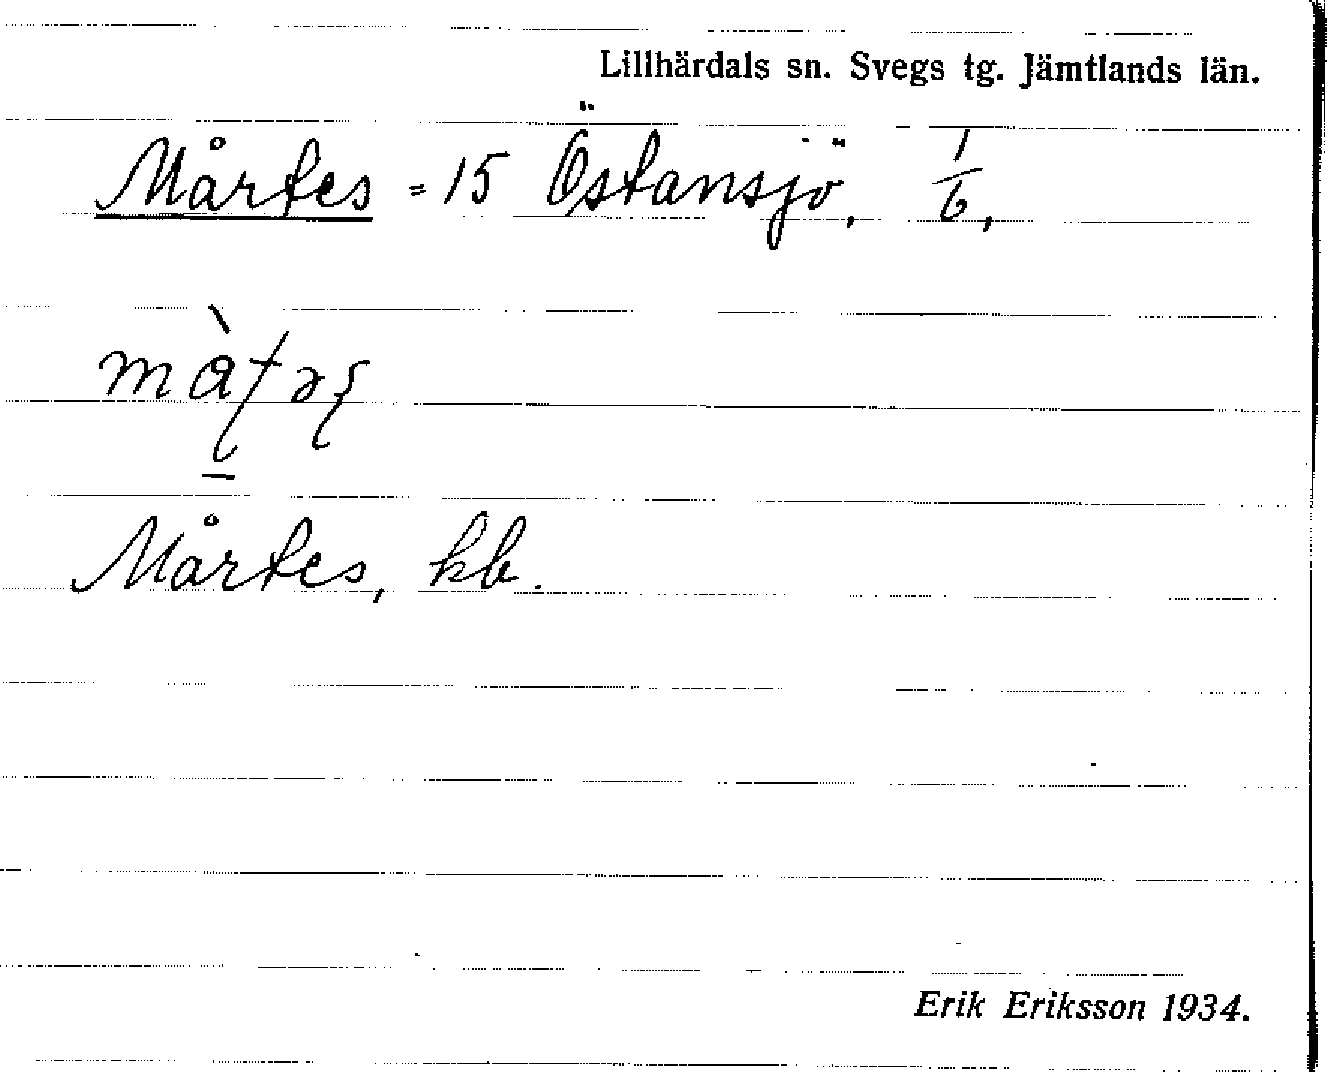 Lillhärdals sn. Svegs tg. Jämtlands län.
Mårtes = 15 Östansjö, 1/6,
Mårtes, kb.
Erik Eriksson 1934.